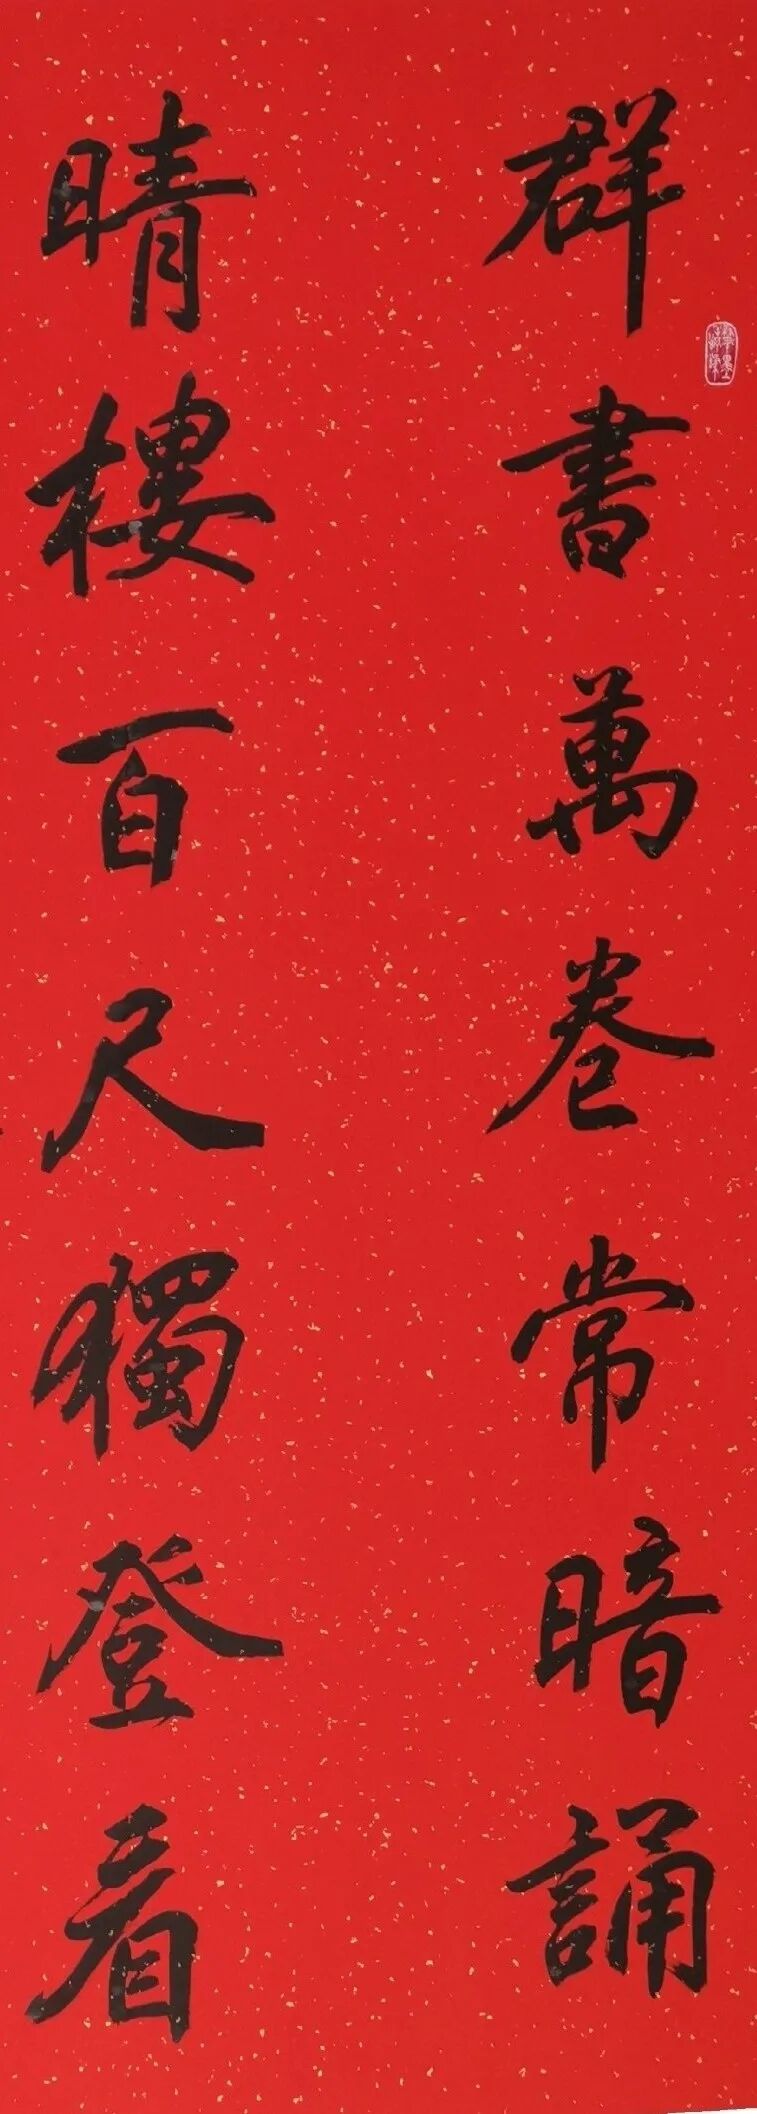 群書萬卷常暗誦
晴樓百尺獨登看